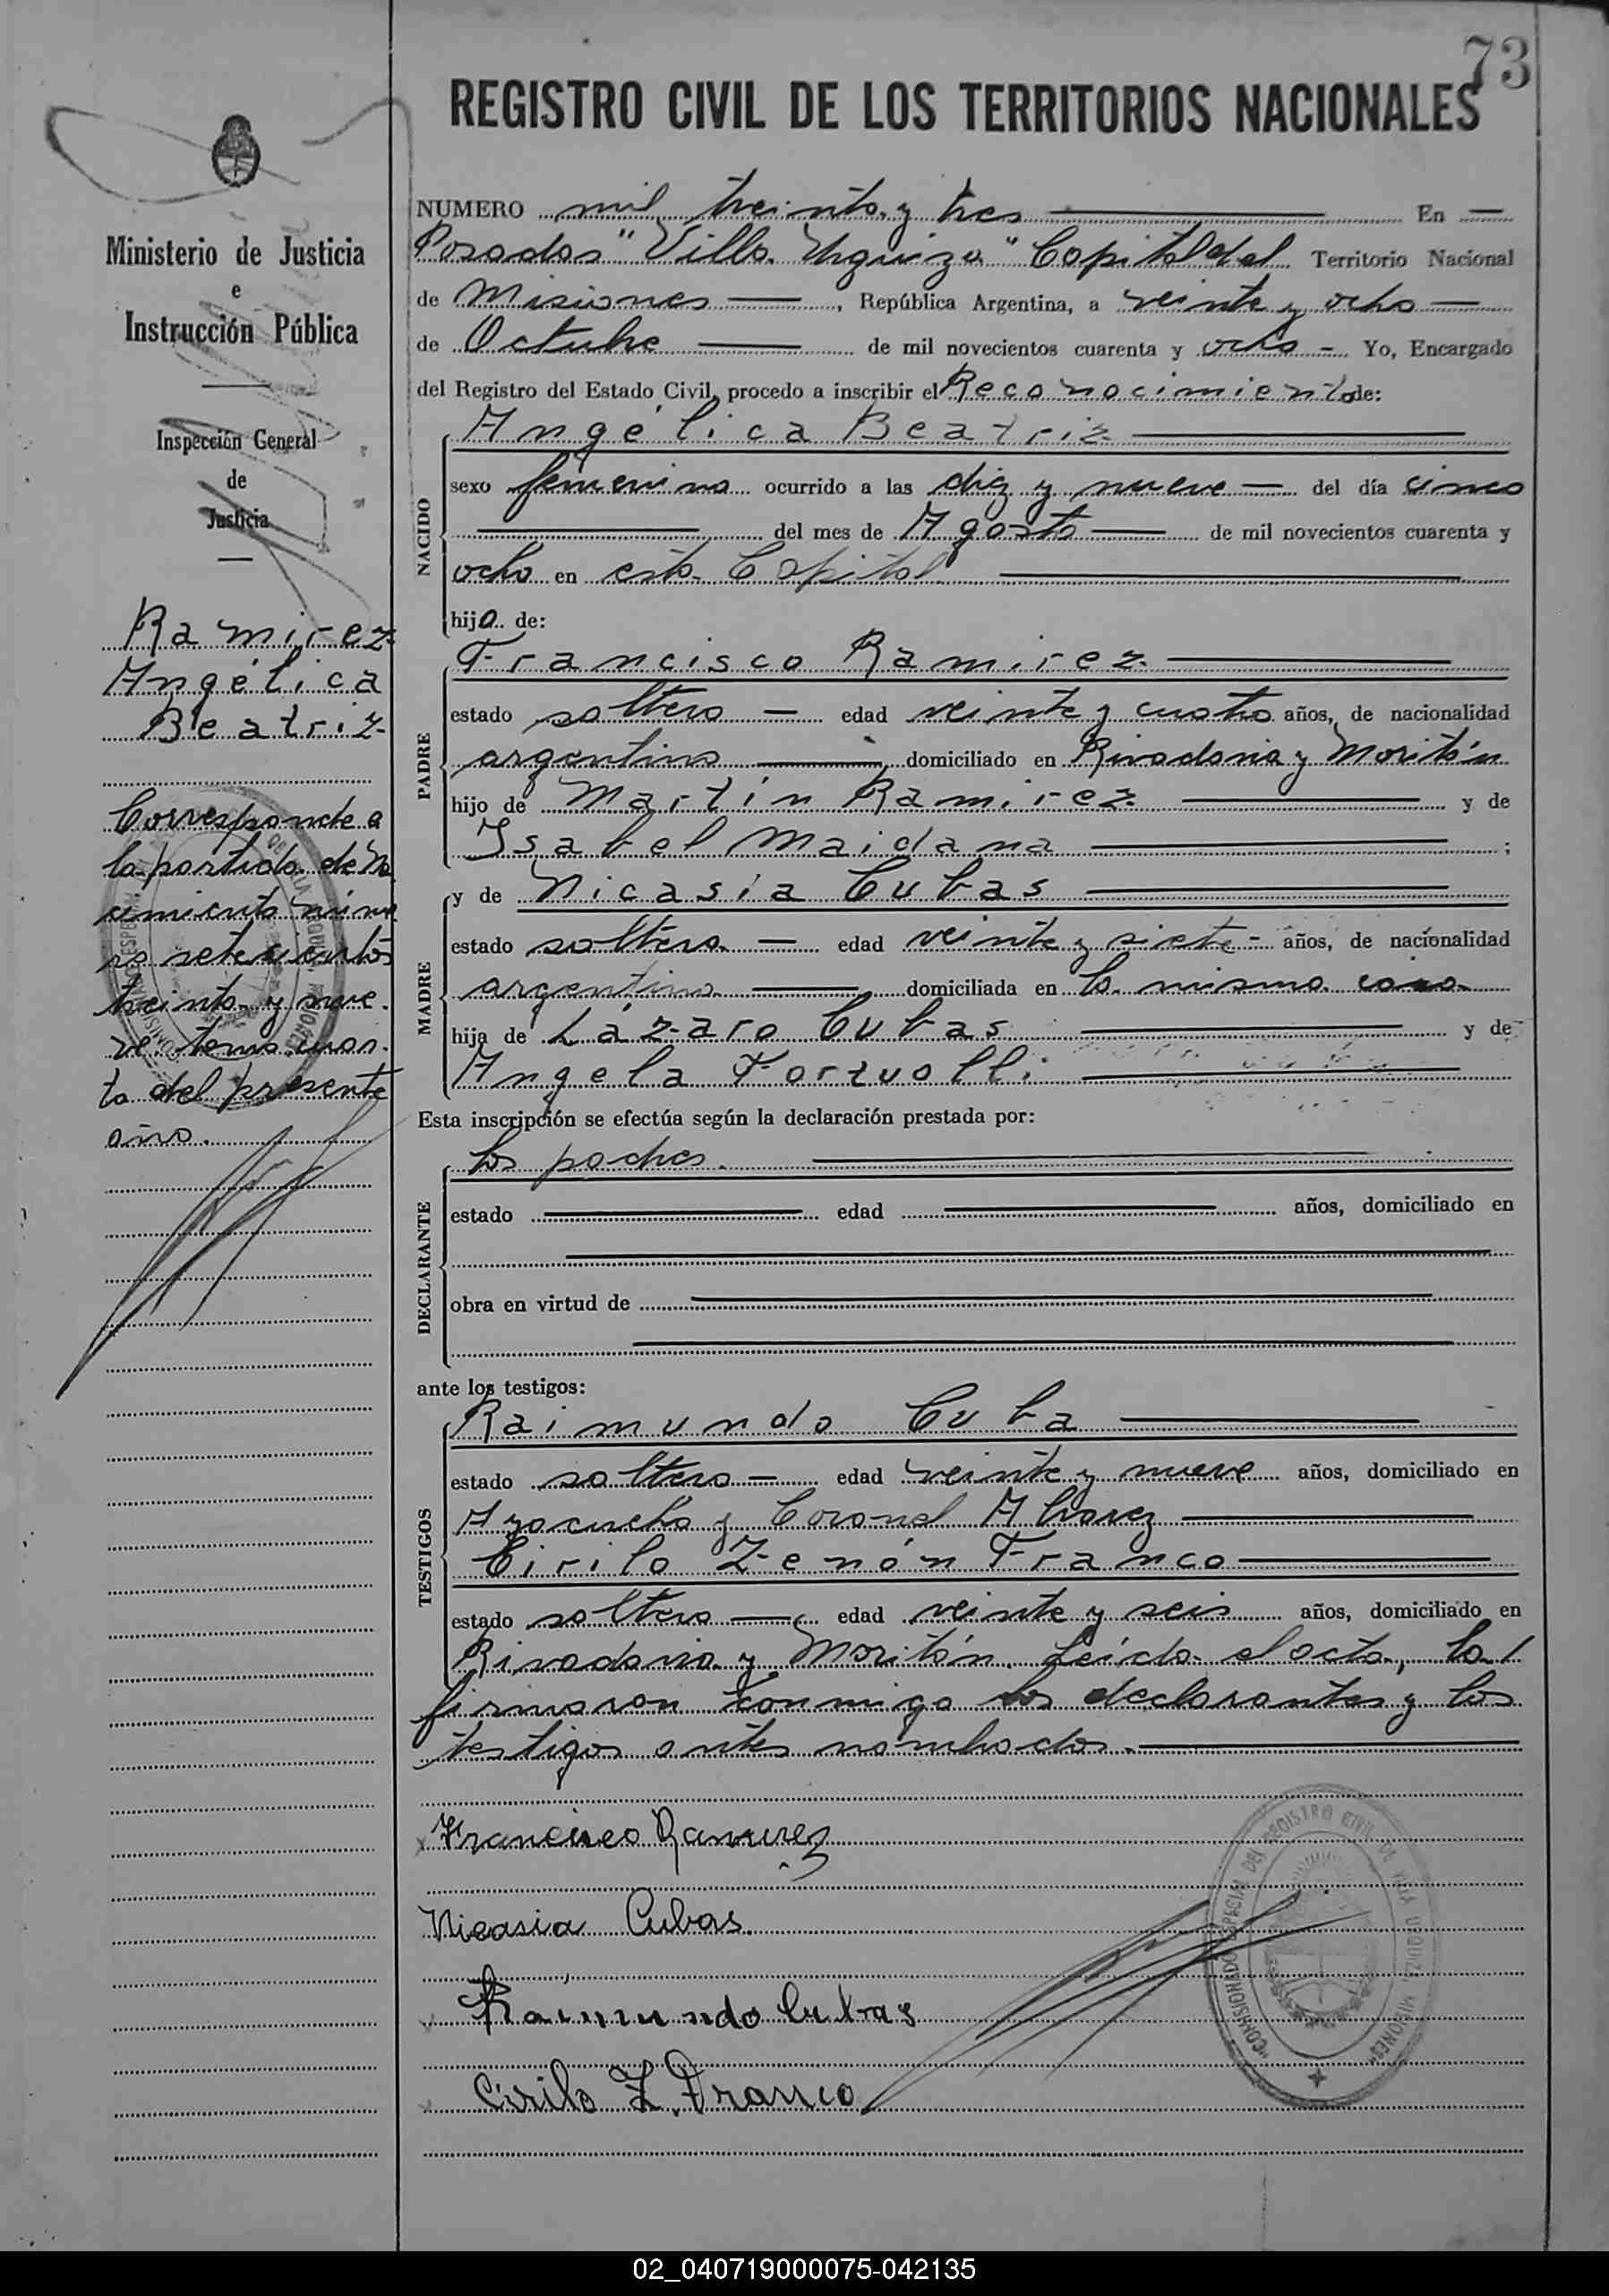 73
REGISTRO CIVIL DE LOS TERRITORIOS NACIONALES
Ministerio de Justicia
e
Instrucción Pública
Inspección General
de
Justicia
Ramirez
Angélica
Beatriz
Corresponde a
la partida de Na
cimiento núme
ro setecientos
treinta y nue-
ve tomo cuar-
to del presente
año.
NUMERO mil treinta y tres En
Posadas "Villa Urquiza" Capital del Territorio Nacional
de Misiones, República Argentina, a veinte y ocho
de Octubre de mil novecientos cuarenta y ocho - Yo, Encargado
del Registro del Estado Civil, procedo a inscribir el Reconocimiento de:
NACIDO
Angélica Beatriz
sexo femenino ocurrido a las diez y nueve del día cinco
del mes de Agosto de mil novecientos cuarenta y
ocho en esta Capital
hija de:
PADRE
Francisco Ramirez
estado soltero edad veinte y cuatro años, de nacionalidad
argentino domiciliado en Rivadavia y Moritán
hijo de Martín Ramirez y de
Isabel Maidana ;
MADRE
y de Nicasia Cubas
estado soltera edad veinte y siete - años, de nacionalidad
argentina domiciliada en la misma casa
hija de Lázaro Cubas y de
Angela
Esta inscripción se efectúa según la declaración prestada por:
DECLARANTE
los padres.
estado edad años, domiciliado en
obra en virtud de
ante los testigos:
TESTIGOS
Raimundo Cuba
estado soltero edad veinte y nueve años, domiciliado en
Ayacucho y Coronel Alvarez
Cirilo Zenón Franco
estado soltero edad veinte y seis años, domiciliado en
Rivadavia y Moritán. Leída el acta, la
firmaron conmigo los declarantes y los
testigos antes nombrados.
Francisco Ramirez
Nicasia Cubas.
Raimundo Cubas
Cirilo Z. Franco
COMISIONADO ESPECIAL DEL REGISTRO CIVIL DE VILLA URQUIZA MISIONES
02_040719000075-042135